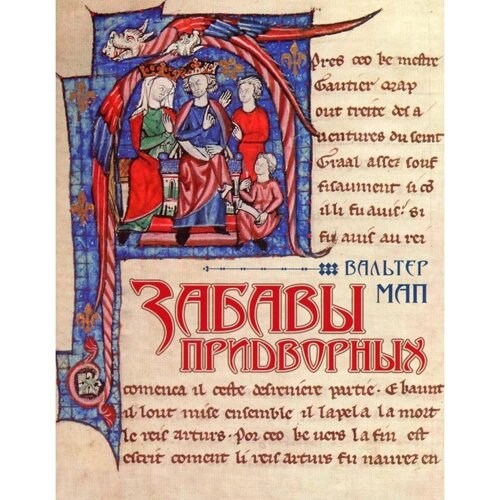 Pres ceo be mestre
Gautier map
out treite des a
uentures du seint
Graal assez souf
fisaument si cō
il li fu auis! si
fu auis au rei
ВАЛЬТЕР
МАП
ЗАБАВЫ
ПРИДВОРНЫХ
comenca il ceste desreniere partie. E baunt
il lout mise ensemble il lapela la mort
le reis arturs. Por ceo be uers la fin est
escrit coment li reis arturs fu naurez en